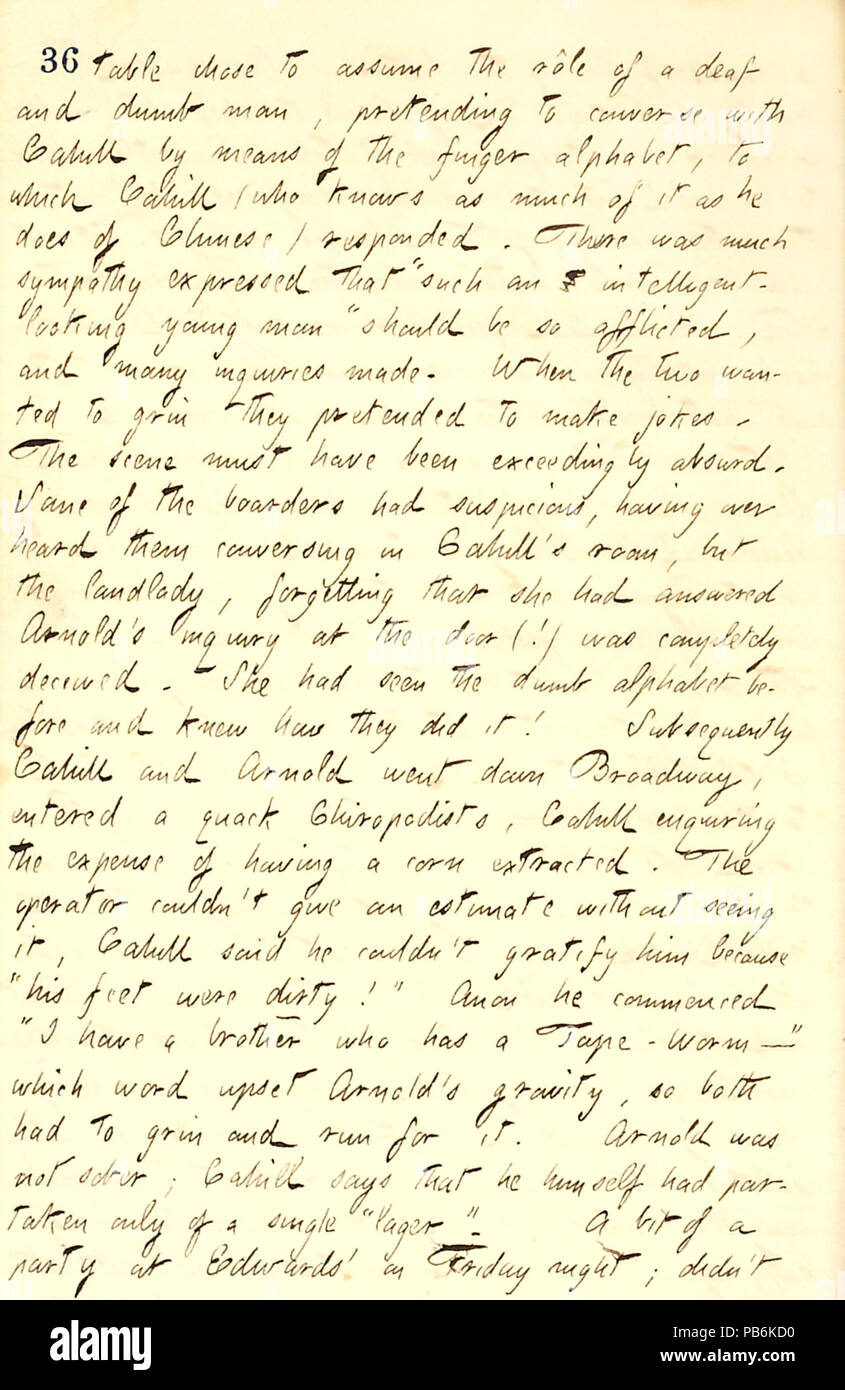 36 table chose to assume the rôle of a deaf
and dumb man, pretending to converse with
Cahill by means of the finger alphabet, to
which Cahill (who knows as much of it as he
does of Chinese) responded. There was much
sympathy expressed that "such an intelligent-
looking young man" should be so afflicted,
and many inquiries made. When the two wan-
ted to grin they pretended to make jokes.
The scene must have been exceedingly absurd.
Some of the boarders had suspicions, having over
heard them conversing in Cahill's room, but
the landlady, forgetting that she had answered
Arnold's inquiry at the door (!) was completely
deceived. She had seen the dumb alphabet be-
fore and knew how they did it! Subsequently
Cahill and Arnold went down Broadway,
entered a quack Chiropodists, Cahill enquiring
the expense of having a corn extracted. The
operator couldn't give an estimate without seeing
it, Cahill said he couldn't gratify him because
"his feet were dirty!" Anon he commenced
"I have a brother who has a Tape-Worm—"
which word upset Arnold's gravity, so both
had to grin and run for it. Arnold was
not sober; Cahill says that he himself had par-
taken only of a single "lager". A bit of a
party at Edwards' on Friday night; didn't
alamy
Image ID: PB6KD0
www.alamy.com